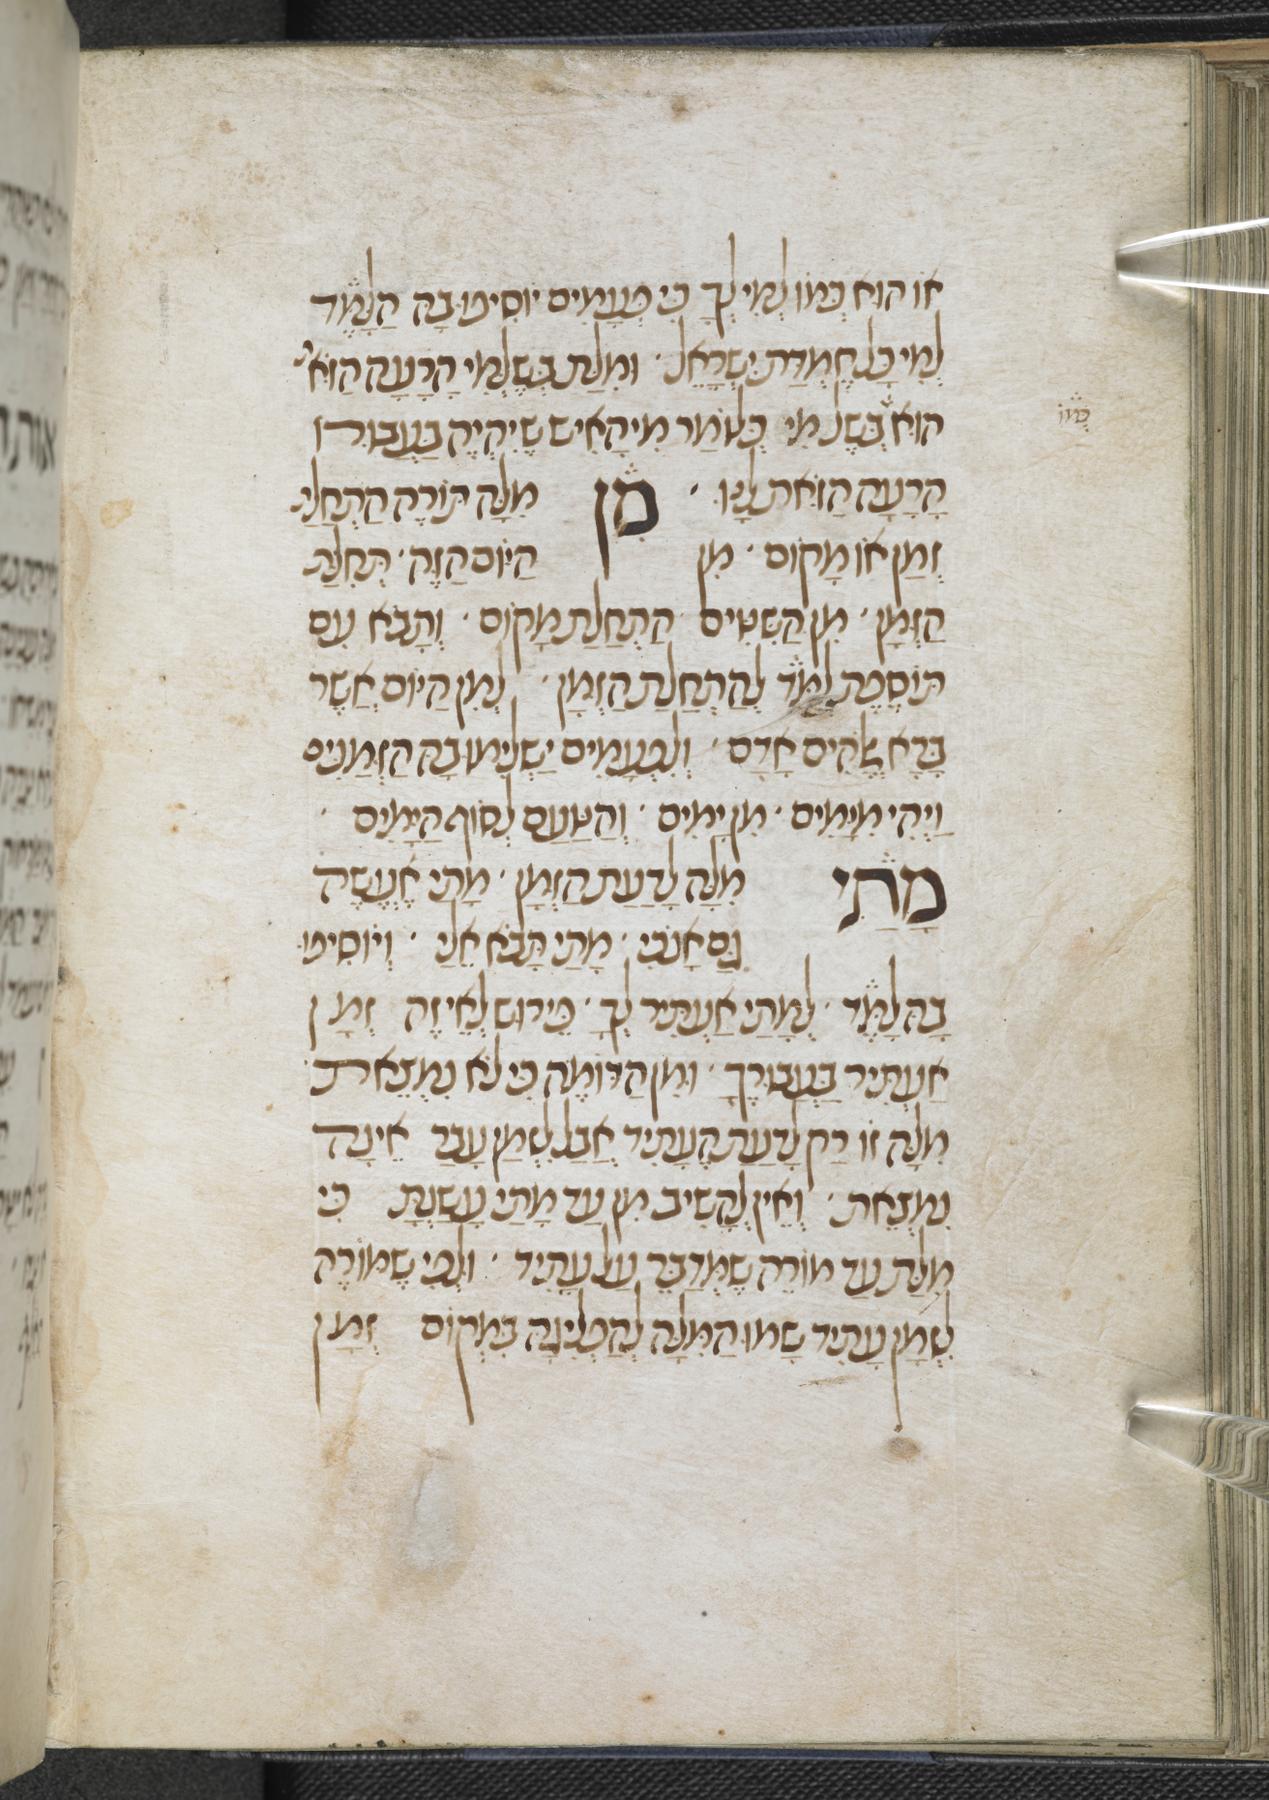 אוֹ הוּא כְּמוֹ לְמִי לְךָ כִּי פְּעָמִים יוֹסִיפוּ בָהּ הַלָּמֶד
לְמִי כָּל חֶמְדַּת יִשְׂרָאֵל · וּמִלַּת בְּשֶׁלְּמִי הָרָעָה הַזֹּא'
הוּא בְּשֶׁל מִי כְּלוֹמַר מִי הָאִישׁ שֶׁיִּהְיֶה בַּעֲבוּרוֹ
כמו
הָרָעָה הַזֹּאת לָנוּ · מִן מִלָּה תּוֹרֶה הַתְחָלַת
זְמַן אוֹ מָקוֹם · מִן הַיּוֹם הַזֶּה · תְּחִלַּת
הַזְּמָן · מִן הַשִּׁטִּים הַתְחָלַת מָקוֹם · וְתָבֹא עִם
תּוֹסֶפֶת לָמֶד לְהַתְחָלַת הַזְּמָן · לְמִן הַיּוֹם אֲשֶׁר
בָּרָא אֱלֹהִים אָדָם · וְלִפְעָמִים יַשְׁלִימוּ בָהּ הַזְּמַנִּים
וַיְהִי מִיָּמִים · מִן יָמִים · וְהַטַּעַם לְסוֹף הַיָּמִים ·
מָתַי מִלָּה לְדַעַת הַזְּמָן · מָתַי אֶעֱשֶׂה
גַּם אָנֹכִי · מָתַי תָּבֹא אֵלַי · וְיוֹסִיפוּ
בָהּ לָמֶד · לְמָתַי אַעְתִּיר לְךָ · פֵּירוּשׁ לְאֵי זֶה זְמָן
אַעְתִּיר בַּעֲבוּרֶךָ · וּמִן הַדּוֹמֶה כִּי לֹא נִמְצֵאת
מִלָּה זוֹ רַק לְדַעַת הֶעָתִיד אֲבָל לִזְמַן עָבַר אֵינָהּ
נִמְצֵאת · וְאֵין לְהָשִׁיב מִן עַד מָתַי עָשַׁנְתָּ כִּי
מִלַּת עַד מוֹרֶה שֶׁמְּדַבֵּר עַל עָתִיד · וּלְפִי שֶׁמּוֹרֶה
לִזְמָן עָתִיד שָׂמוּ הַמִּלָּה לְהַפְלִיגָהּ בִּמְקוֹם זְמָן